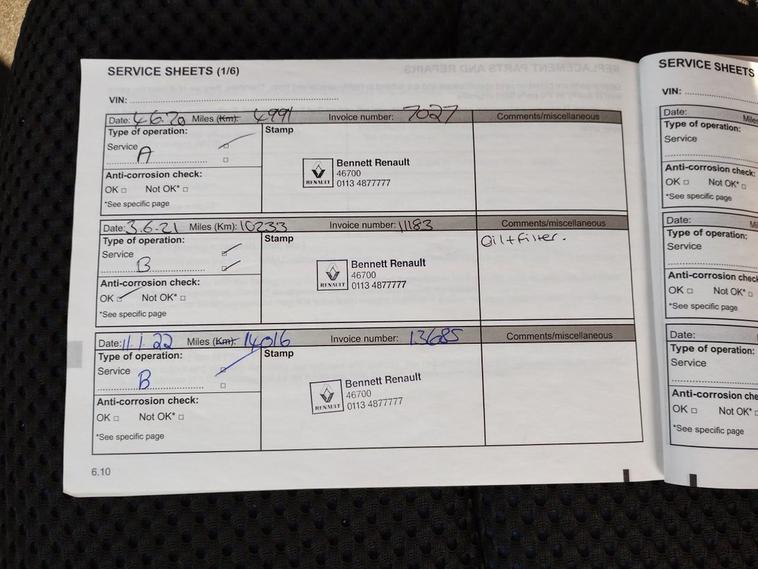 SERVICE SHEETS (1/6)
VIN:
Date: 4.6.20 Miles (Km): 4991 Invoice number: 7027 Comments/miscellaneous
Type of operation: Stamp
Service
A
Bennett Renault
46700
RENAULT 0113 4877777
Anti-corrosion check:
OK □ Not OK* □
*See specific page
Date: 3.6.21 Miles (Km): 10233 Invoice number: 11183 Comments/miscellaneous
Type of operation: Stamp Oil + filter.
Service
B
Bennett Renault
46700
RENAULT 0113 4877777
Anti-corrosion check:
OK □ Not OK* □
*See specific page
Date: 11.1.22 Miles (Km): 14016 Invoice number: 13685 Comments/miscellaneous
Type of operation: Stamp
Service
B
Bennett Renault
46700
RENAULT 0113 4877777
Anti-corrosion check:
OK □ Not OK* □
*See specific page
6.10
SERVICE SHEETS
VIN:
Date: Miles
Type of operation:
Service
Anti-corrosion check
OK □ Not OK* □
*See specific page
Date: Mi
Type of operation:
Service
Anti-corrosion check
OK □ Not OK* □
*See specific page
Date:
Type of operation:
Service
Anti-corrosion che
OK □ Not OK* □
*See specific page